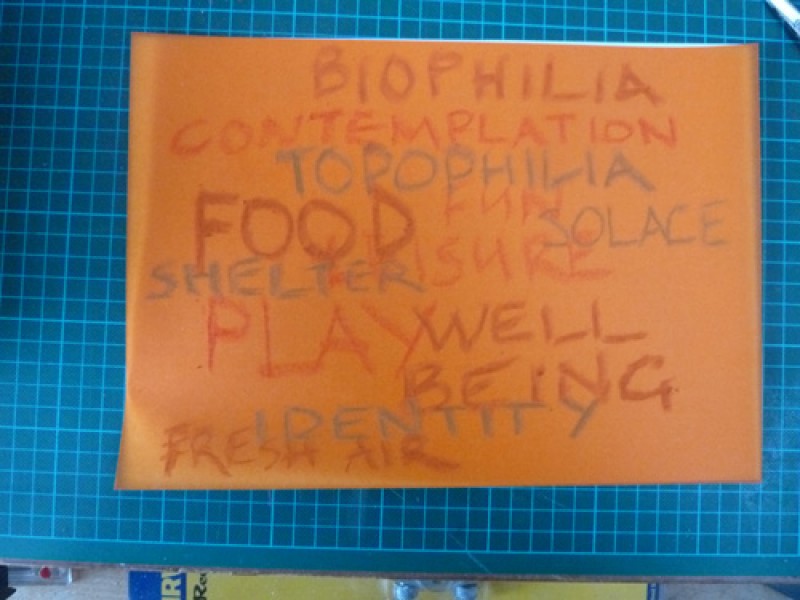 BIOPHILIA
CONTEMPLATION
TOPOPHILIA
FUN
FOOD
SOLACE
LEISURE
SHELTER
PLAY
WELL
BEING
IDENTITY
FRESH AIR